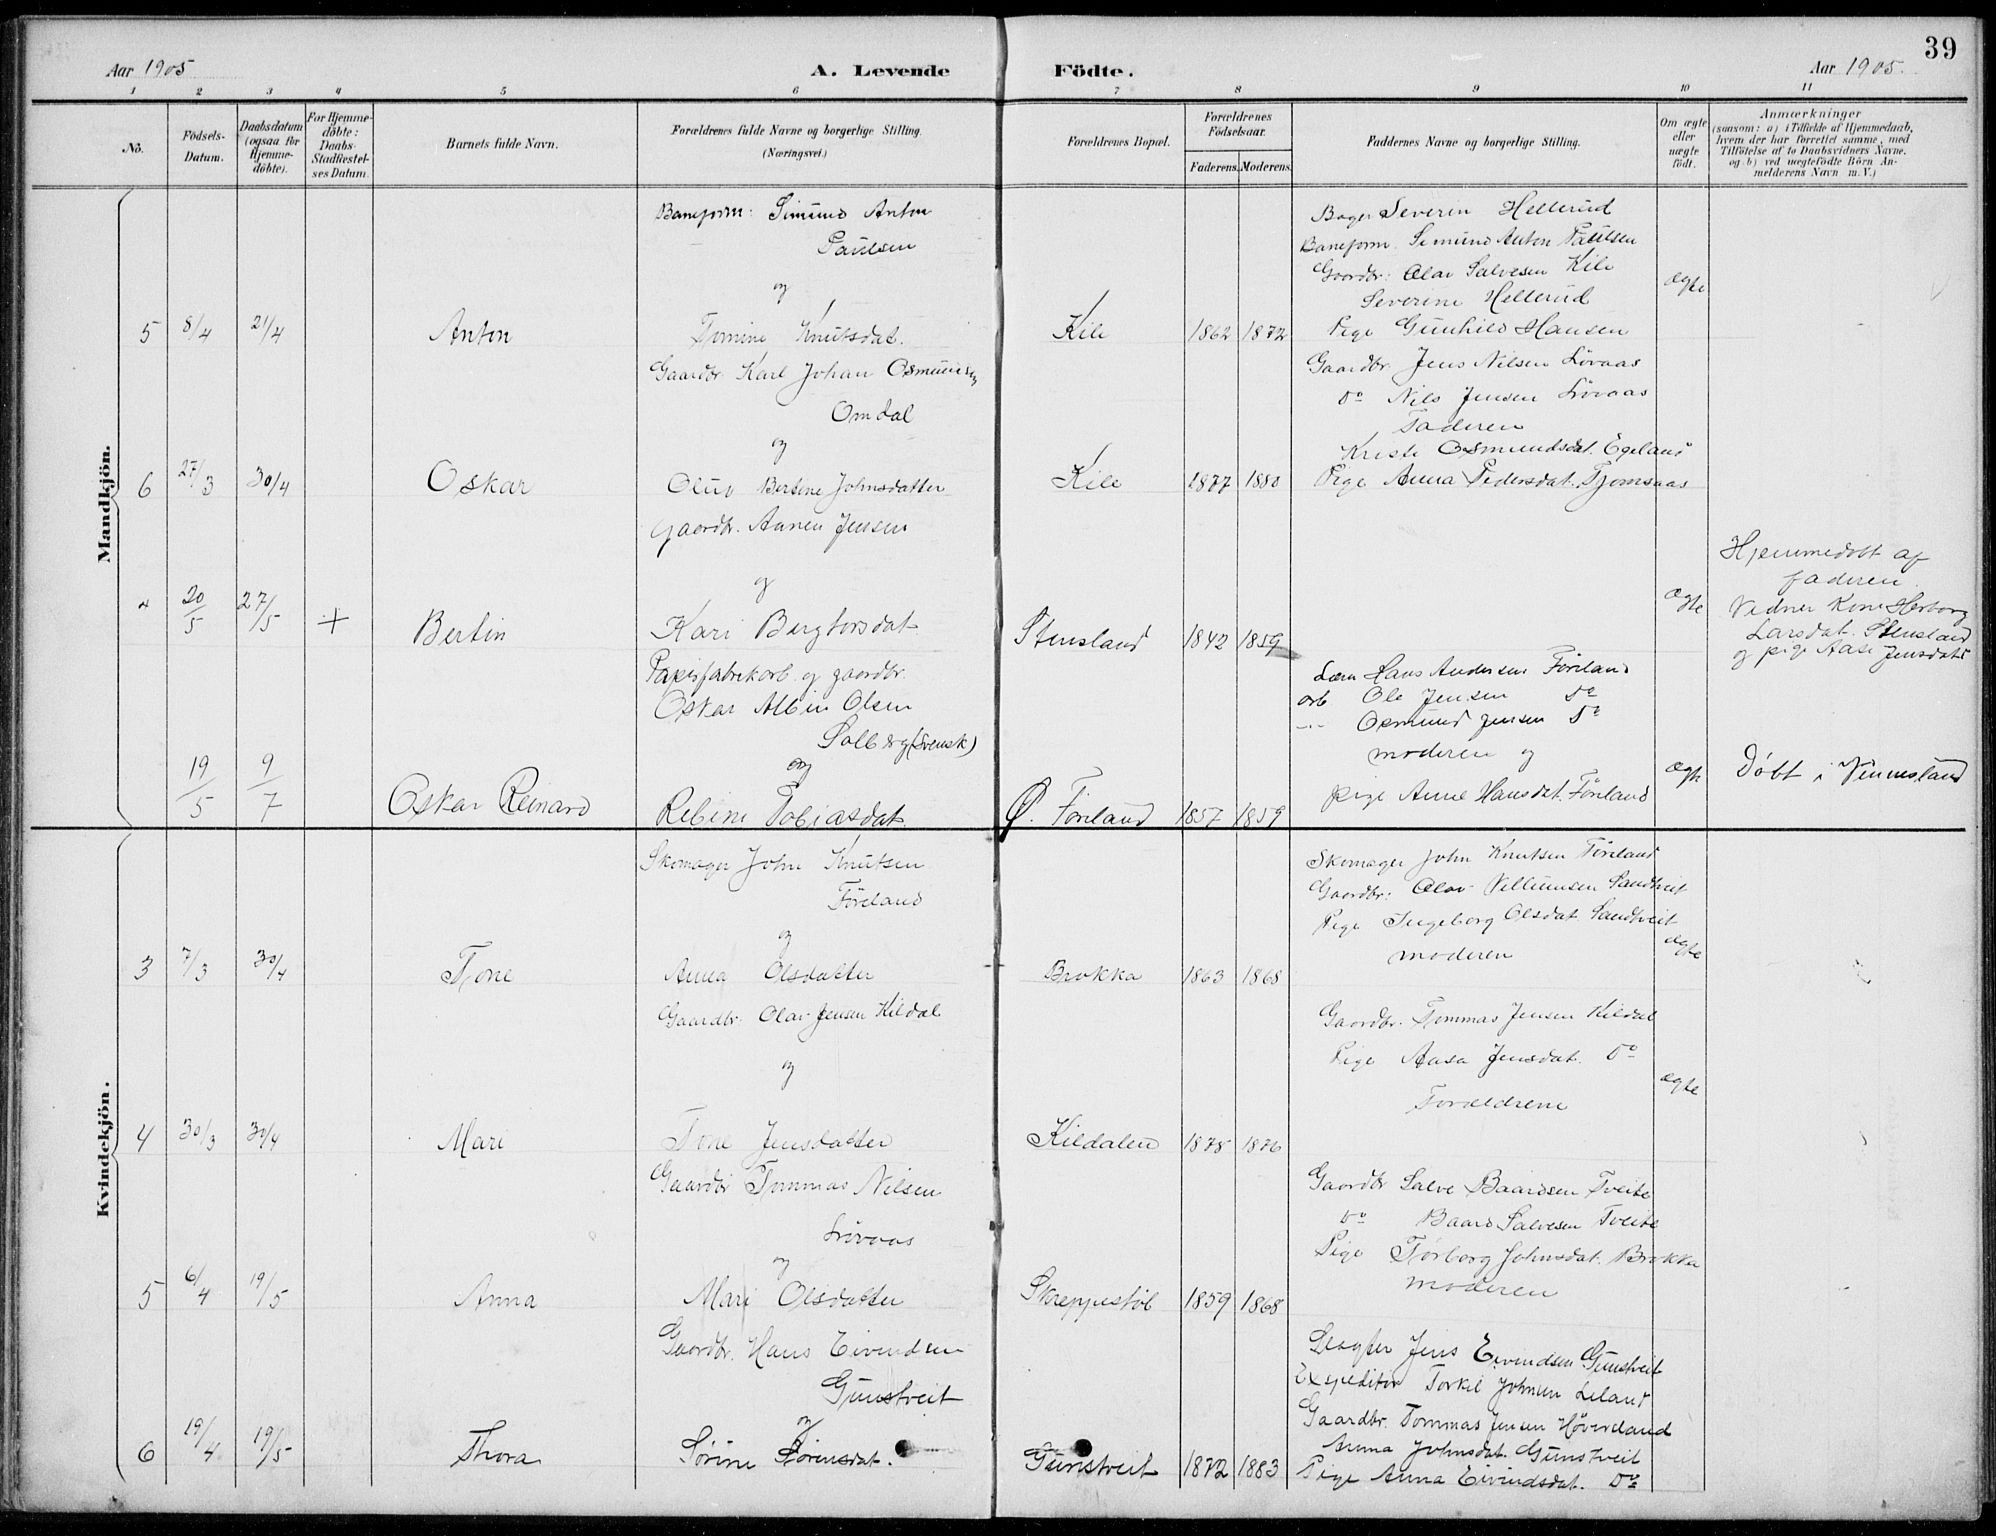 39
Aar 1905
A. Levende
Födte.
Aar 1905.
1 2 3 4 5 6 7 8 9 10 11
No.
Födsels-
Datum.
Daabsdatum
(ogsaa for
Hjemme-
döbte).
For Hjemme-
döbte:
Daabs-
Stadfæstel-
ses Datum.
Barnets fulde Navn.
Forældrenes fulde Navne og borgerlige Stilling.
(Næringsvei.)
Forældrenes Bopæl.
Forældrenes
Födselsaar.
Faderens. Moderens.
Faddernes Navne og borgerlige Stilling.
Om ægte
eller
uægte
födt.
Anmærkninger
(saasom: a) i Tilfælde af Hjemmedaab,
hvem der har forrettet samme, med
Tilföielse af to Daabsvidners Navne.
og b) ved uægtefödte Börn An-
melderens Navn m. V.)
Mandkjön.
Baneform: Simund Anton
Paulsen
og
5 8/4 21/4 Anton Tomine Knutsdat. Kile 1862 1872
Bager Severin Hellerud
Baneform. Simund Anton Paulsen
Gaardbr: Olav Salvesen Kile
Severine Hellerud
Pige Gunhild Hansen
ægte
Gaardbr Karl Johan Osmundsen
Omdal
og
6 27/3 30/4 Oskar Oluv Bertine Johnsdatter Kile 1877 1880
Gaardbr Jens Nilsen Lövaas
Do Nils Jensen Lövaas
Faderen
Kriste Osmundsdat. Egeland
Pige Anna Pedersdat. Tjomsaas
Gaardbr. Aanen Jensen
og
20/5 27/5 + Bertin Kari Bergtorsdat. Stensland 1842 1859
ægte
Hjemmedöbt af
faderen.
Vidner Kone Herborg
Larsdat. Stensland
og pige Aase Jensdat
Papirfabrikarb. og gaardbr.
Oskar Albin Olsen
Solberg (Svensk)
og
19/5 9/7 Oskar Reinard Rebine Tobiasdat. Ø. Föreland 1857 1859
Hans Andersen Föreland
arb Ole Jensen Do
-"- Osmund Jensen Do
moderen og
pige Anne Hansdat. Föreland
ægte
Döbt i Vennesland
Kvindekjön.
Skomager John Knutsen
Föreland
og
3 7/3 30/4 Tone Anna Olsdatter Brokka 1863 1868
Skomager John Knutsen Föreland
Gaardbr: Olav Villumsen Sandtveit
Pige Ingeborg Olsdat. Sandtveit
moderen
ægte
Gaardbr. Olav Jensen Kildal
og
4 30/3 30/4 Mari Tone Jensdatter Kildalen 1875 1876
Gaardbr. Tommas Jensen Kildal
Pige Aasa Jensdat. Do
Forældrene
ægte
Gaardbr Tommas Nilsen
Lövaas
og
5 6/4 19/5 Anna Mari Olsdatter Skreppestöl 1859 1868
Gaardbr Salve Baardsen Tveite
Do Baard Salvesen Tveite
Pige Torborg Johnsdat. Brokka
moderen
Gaardbr. Hans Eivindsen
Gunstveit
og
6 19/4 19/5 Thora Sörine Sörensdat. Gunstveit 1872 1883
Slagter Jens Eivindsen Gunstveit
Expeditör Torkil Johnsen Liland
Gaardbr. Tommas Jensen Höverland
Anna Johnsdat. Gunstveit
Pige Anna Eivindsdat. Do